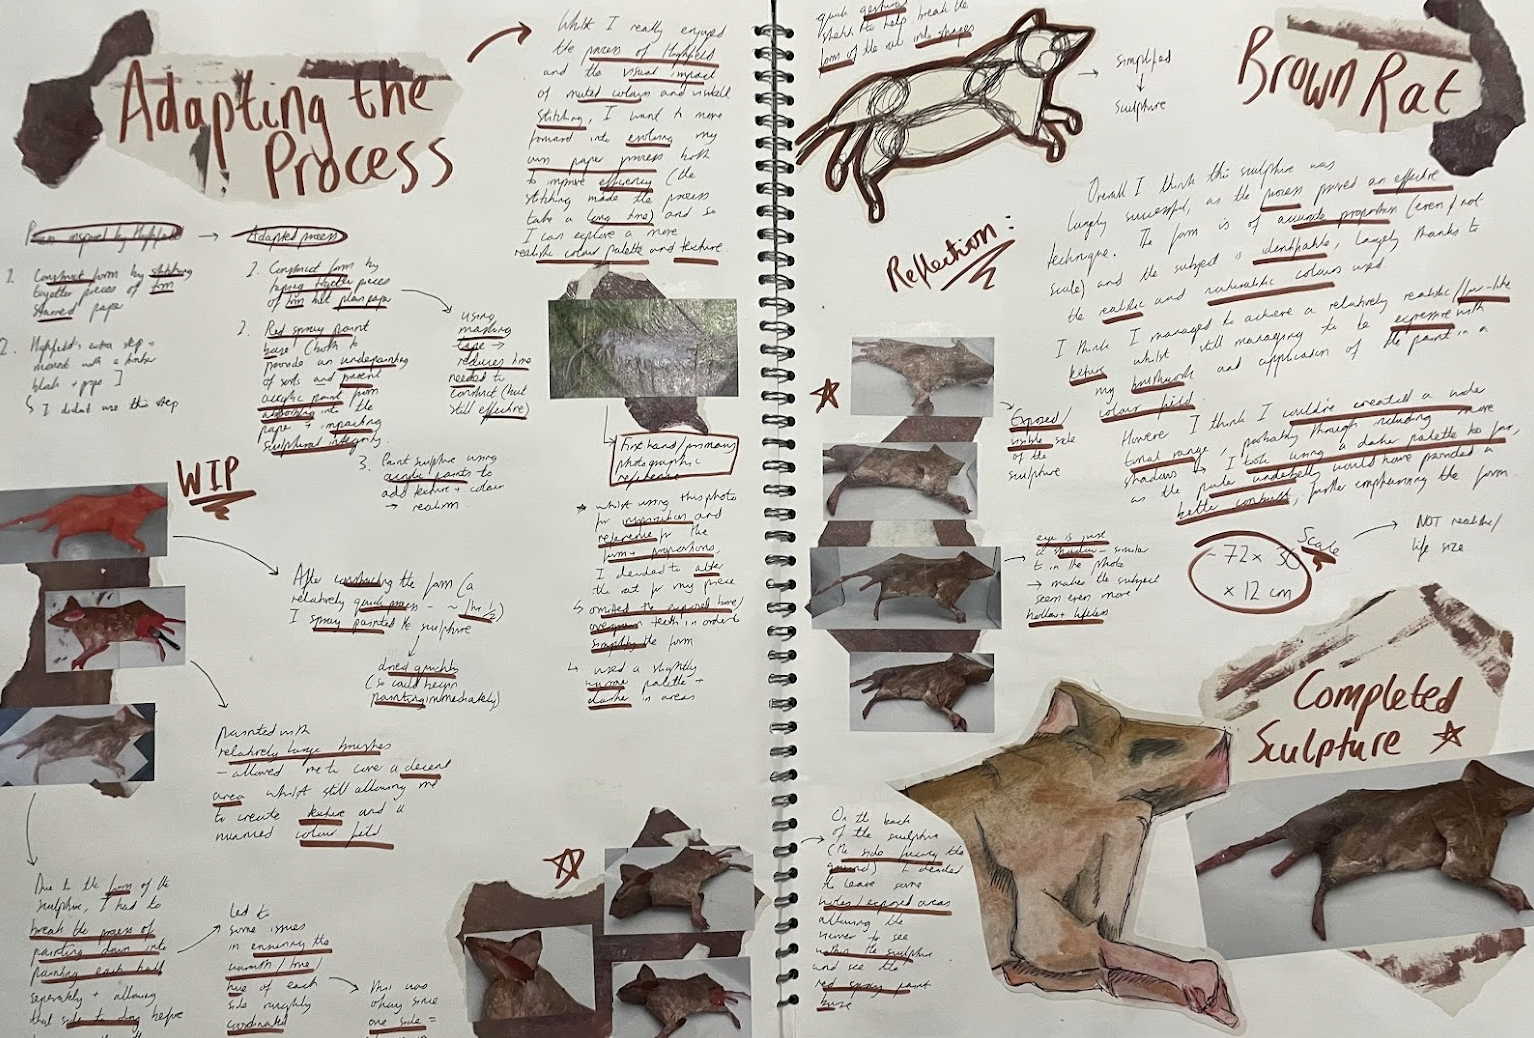 Adapting the
Process
Whilst I really enjoyed
the process of Highfield
and the visual impact
of muted colours and visible
stitching, I want to move
forward into evolving my
own paper process both
to improve efficiency (the
stitching made the process
take a long time) and so
I can explore a more
realistic colour palette and texture.
Process inspired by Highfield → Adapted process
1. Construct form by stitching
together pieces of torn
stained paper
2. Highfield's extra step =
mount with a timber
block + pipe ]
↳ I didnt use this step
1. Construct form by
taping together pieces
of torn wet plain paper
2. Red spray paint
base (both to
provide an underpainting
of sorts and prevent
acrylic paint from
absorbing into the
paper + impacting
sculptural integrity.
3. Paint sculpture using
acrylic paints to
add texture + colour
→ realism
using
masking
tape →
reduces time
needed to
construct (but
still effective)
First hand/primary
photographic
reference
* whilst using this photo
for inspiration and
reference for the
form + proportions,
I decided to alter
the rat for my piece
↳ omitted the exposed bone/
overgrown teeth in order to
simplify the form
↳ used a slightly
warmer palette +
darker in areas
WIP
After constructing the form (a
relatively quick process - ~ 1hr 1/2)
I spray painted the sculpture
dried quickly
(so could begin
painting immediately)
painted with
relatively large brushes
- allowed me to cover a decent
area whilst still allowing me
to create texture and a
nuanced colour field
Due to the form of the
sculpture, I had to
break the process of
painting down into
painting each half
seperately + allowing
that side to dry before
Led to
some issues
in ensuring the
warmth / tone /
hue of each
side roughly
coordinated
this was
okay since
one side =
quick gestural
sketch to help break the
form of the rat into shapes
simplified
sculpture
Brown Rat
Reflection:
Overall I think this sculpture was
largely successful, as the process proved an effective
technique. The form is of accurate proportion (even if not
scale) and the subject is identifiable, largely thanks to
the realistic and naturalistic colours used
I think I managed to achieve a relatively realistic / fur-like
texture whilst still managing to be expressive with
my brushwork and application of the paint in a
colour field.
However I think I could've created a wider
tonal range, probably through including more
shadows → I took using a darker palette too far,
as the paler underbelly would have provided a
better contrast, further emphasising the form.
Exposed/
visible side
of the
sculpture
eye is just
a shadow - similar
to in the photo
→ makes the subject
seem even more
hollow + lifeless
~ 72 x 30
x 12 cm
Scale
NOT realistic/
life size
Completed
Sculpture
On the back
of the sculpture
(the side facing the
ground) I decided
to leave some
holes/exposed areas
allowing the
viewer to see
within the sculpture
and see the
red spray paint
base